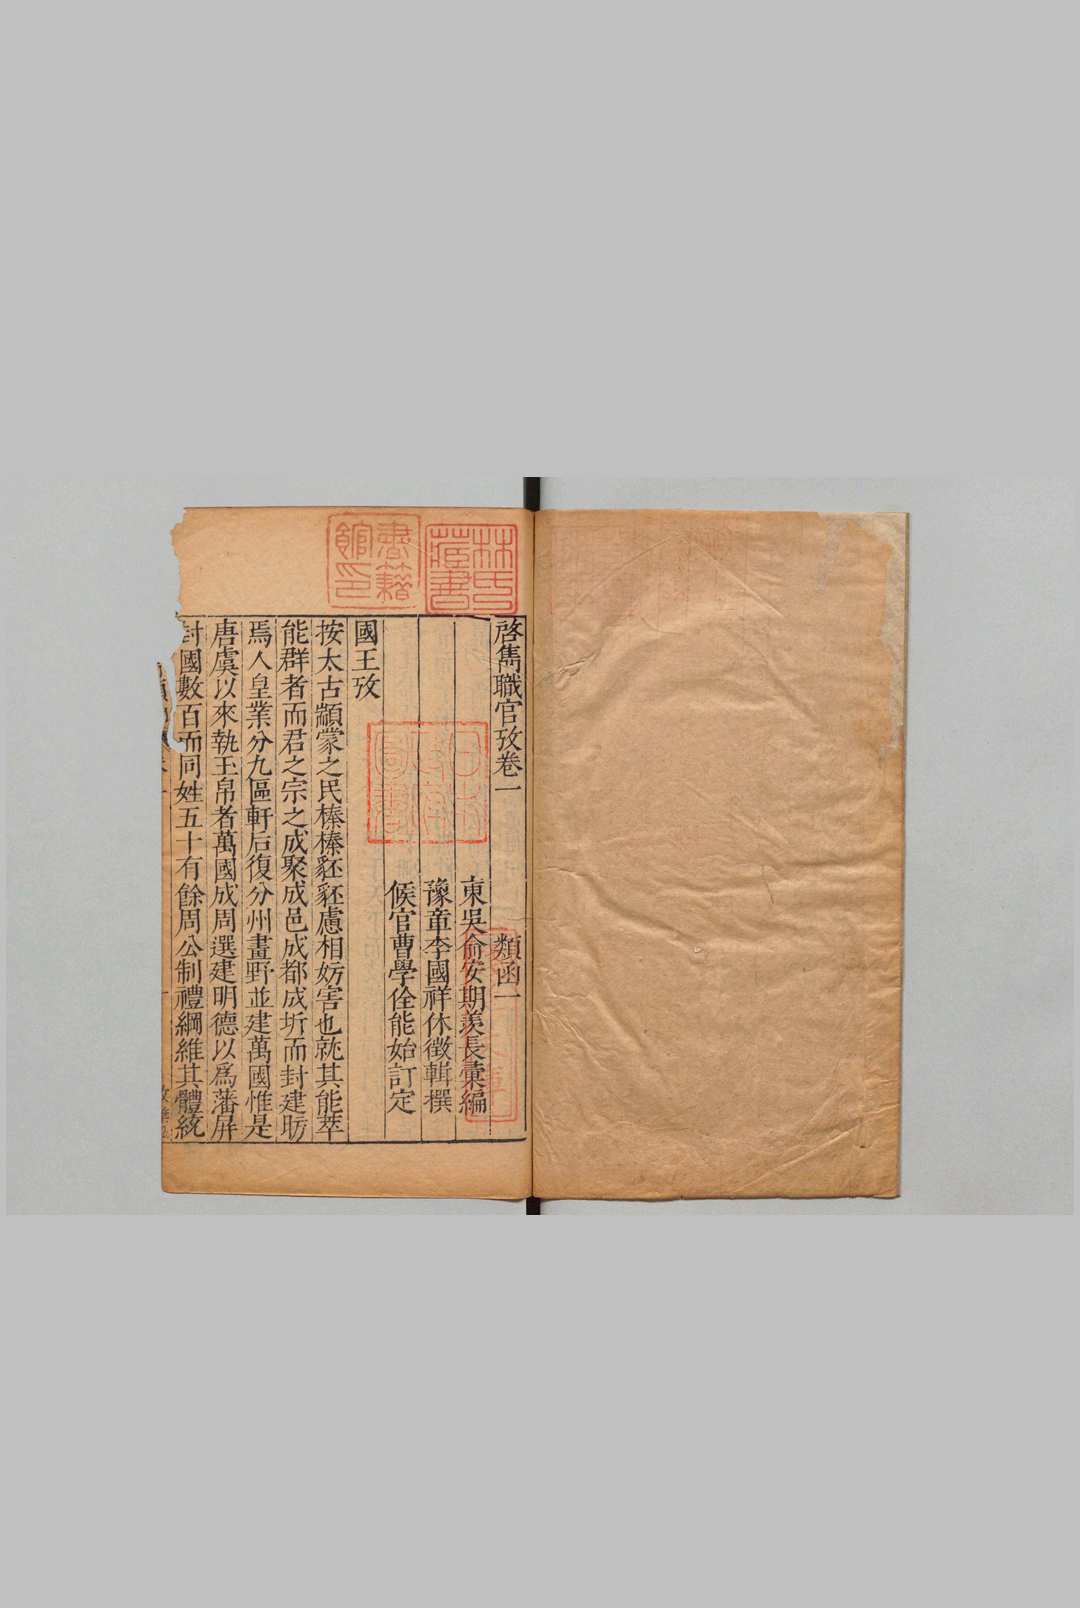 啓雋職官攷卷一 類函一
東吳俞安期羨長彙編
豫章李國祥休徵輯撰
候官曹學佺能始訂定
國王攷
按太古顓蒙之民榛榛豾豾慮相妨害也就其能萃
能群者而君之宗之成聚成邑成都成圻而封建昉
焉人皇業分九區軒后復分州畫野並建萬國惟是
唐虞以來執玉帛者萬國成周選建明德以爲藩屏
封國數百而同姓五十有餘周公制禮綱維其體統
林氏藏書
書籍館印